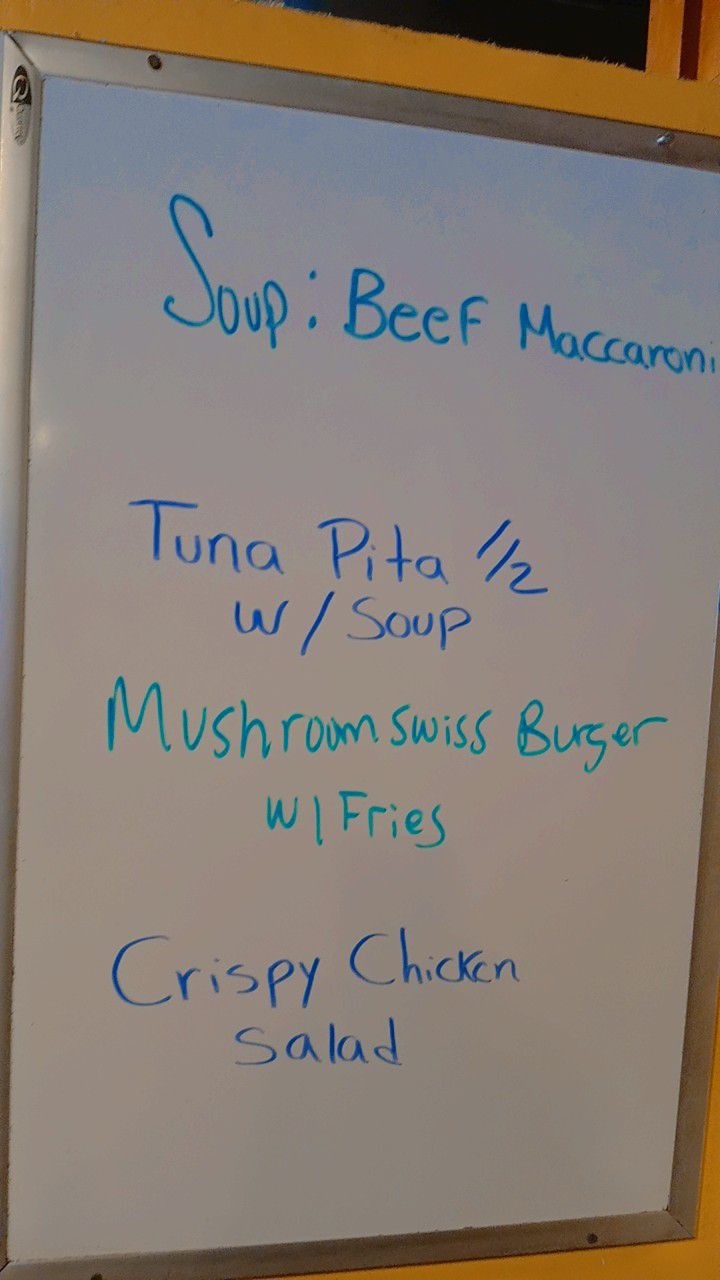 Soup: Beef Maccaroni
Tuna Pita 1/2
w/ Soup
Mushroom Swiss Burger
w/ Fries
Crispy Chicken
Salad